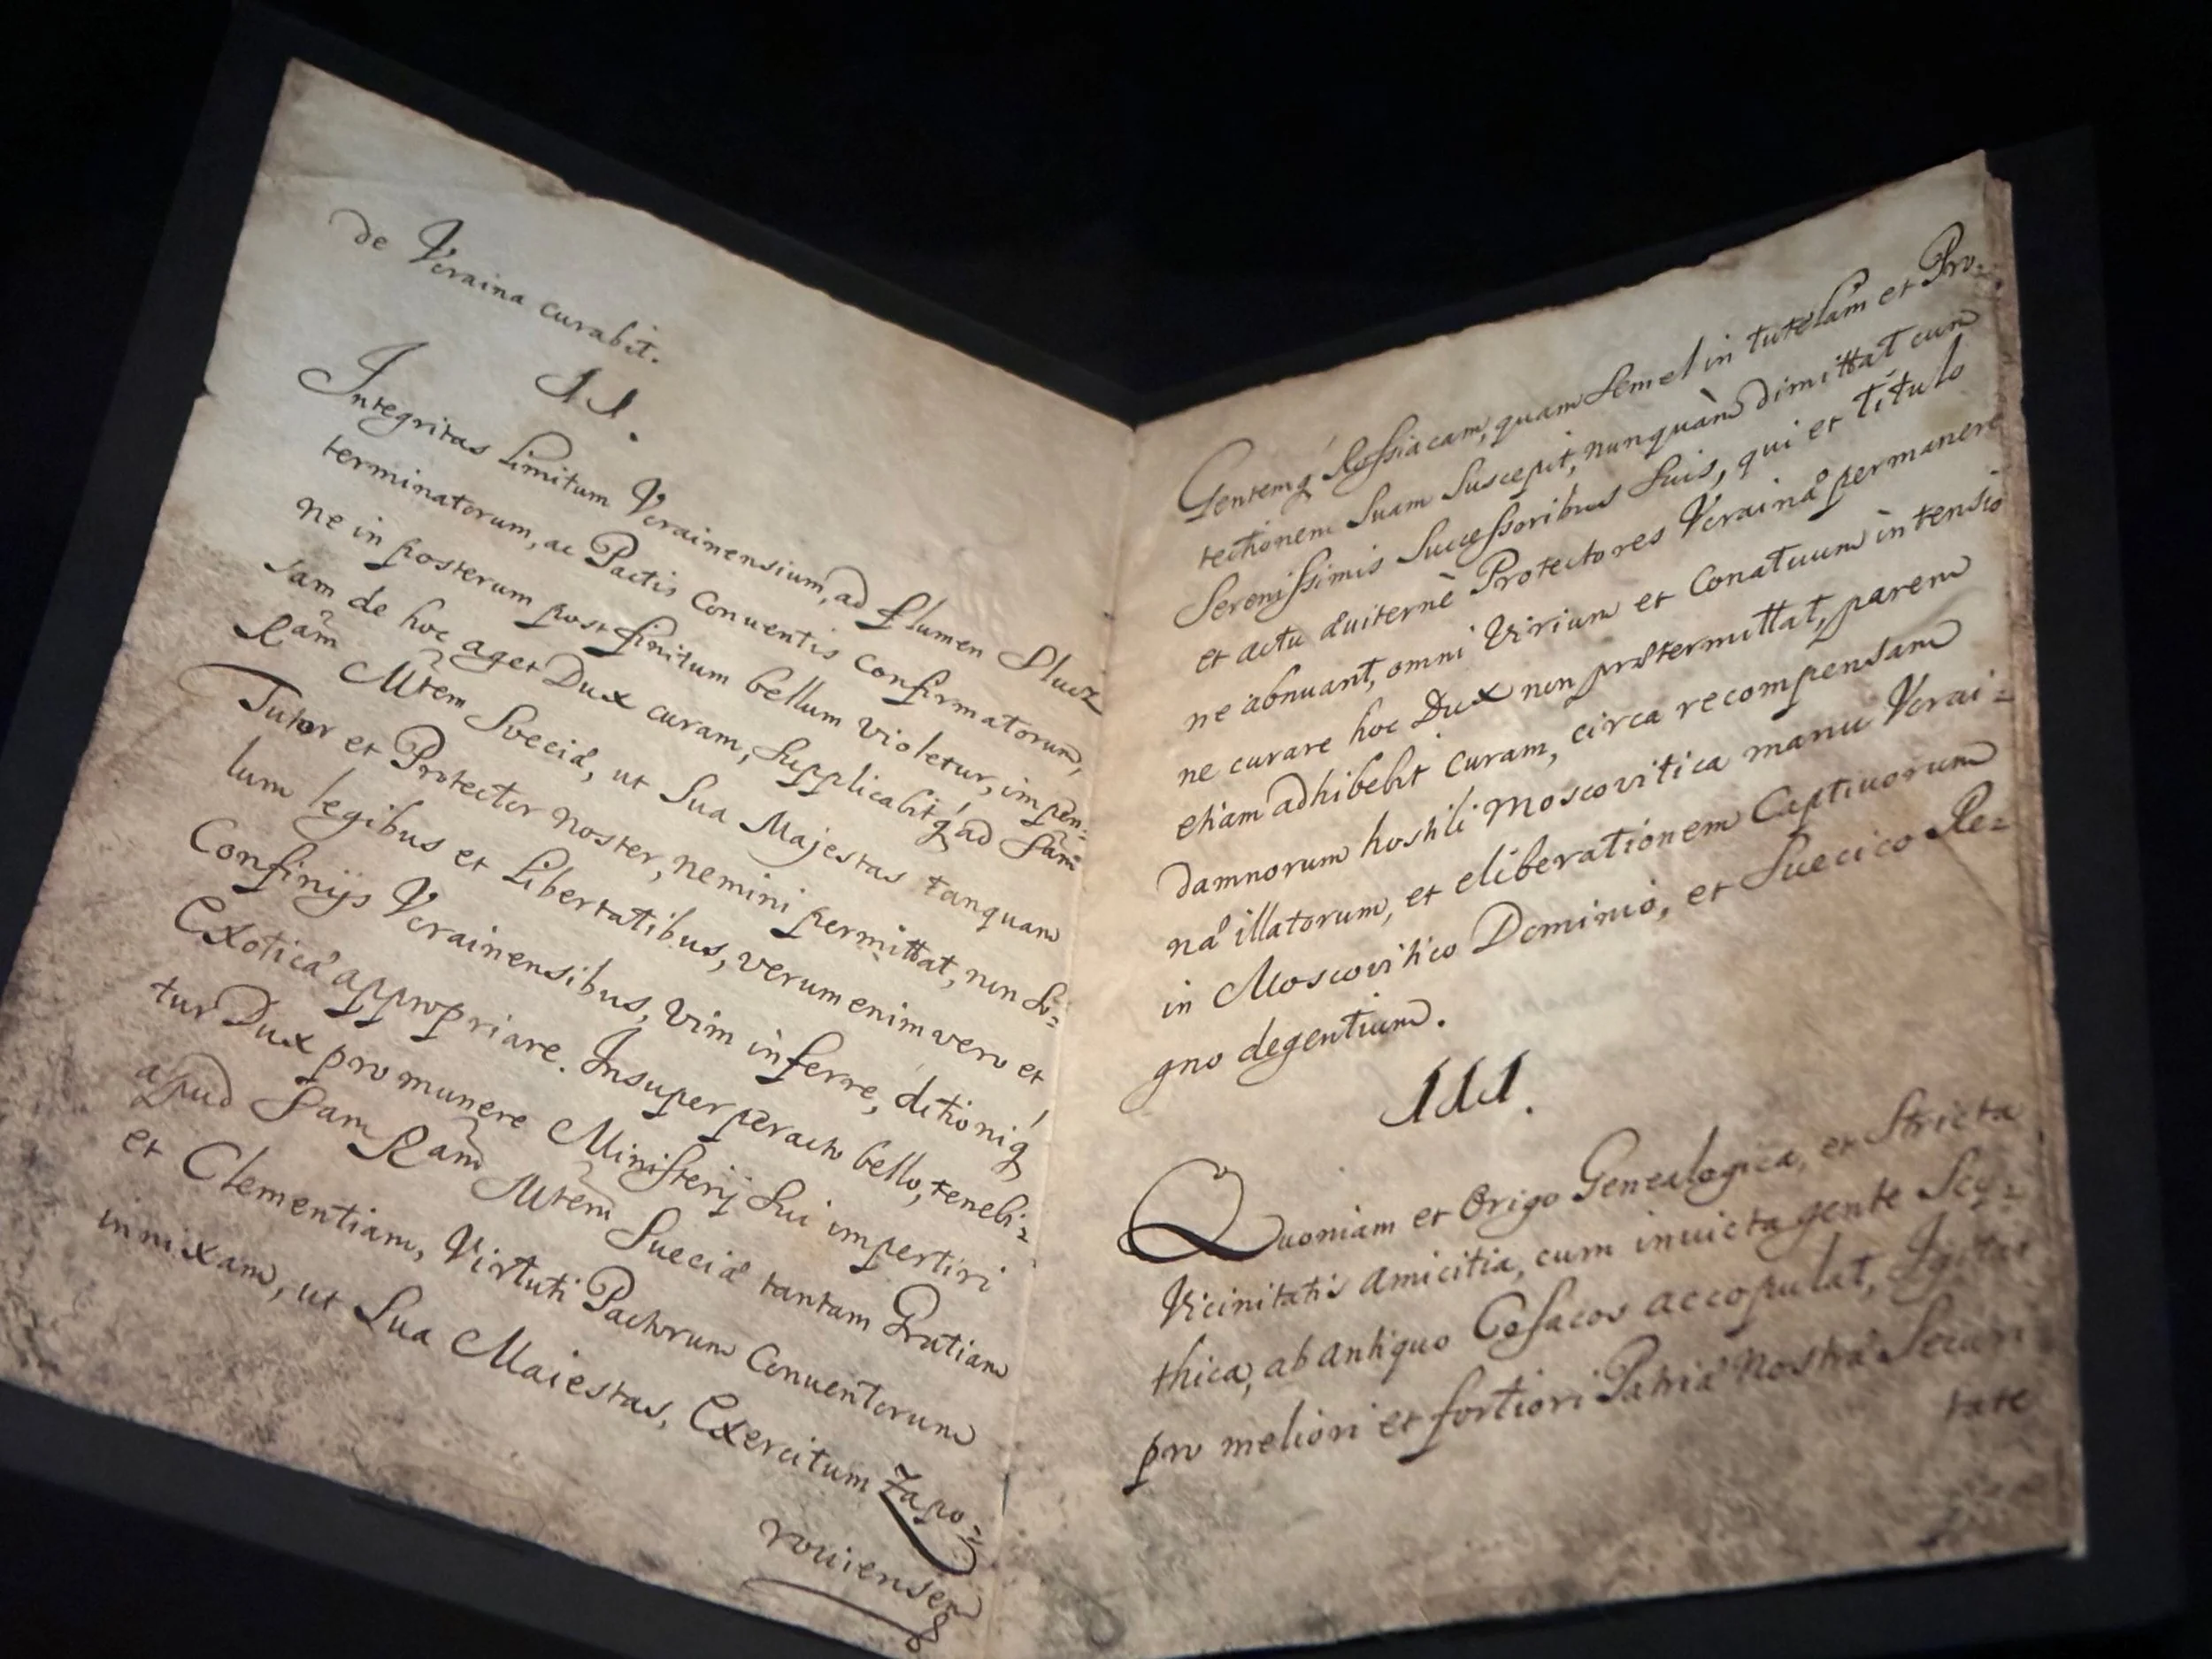 de Vcraina curabit.
II.
Integritas limitum Vcrainensium, ad flumen Slucz
terminatorum, ac Pactis Conventis confirmatorum,
ne in posterum post finitum bellum violetur, impen-
sam de hoc aget Dux curam, supplicabitq́ ad Sam̃
Ram̃ Mtem̃ Sveciæ, ut Sua Majestas tanquam
Tutor et Protector noster, nemini permittat, non so-
lum legibus et Libertatibus, verum enim vero et
Confinijs Vcrainensibus, vim inferre, ditioniq́
Exoticæ appropriare. Insuper peracto bello, tenebi-
tur Dux pro munere Ministerij sui impertiri
apud Sam Ram̃ Mtem̃ Sueciæ tantam Gratiam
et Clementiam, Virtuti Pactorum Conuentorum
innixam, ut Sua Maiestas, Exercitum Zapo-
rouiensem
Gentemq́ Rossiacam, quam semel in tutelam et Pro-
tectionem suam suscepit, nunquàm dimittat cum
Serenissimis Successoribus suis, qui et titulo
et actu æuiternè Protectores Vcrainæ permanere
ne abnuant, omni Virium et Conatuum intensio
ne curare hoc Dux non prætermittat, parem
etiam adhibebit curam, circa recompensam
damnorum hostili Moscovitica manu Vcrai-
næ illatorum, et eliberationem Captiuorum
in Moscovitico Dominio, et Suecico Re-
gno degentium.
III.
Quoniam et Origo Genealogica, et stricta
Vicinitatis Amicitia, cum inuicta gente Scy-
thica, ab antiquo Cosacos accopulat, Igitur
pro meliori et fortiori Patriæ Nostræ Securi
tate